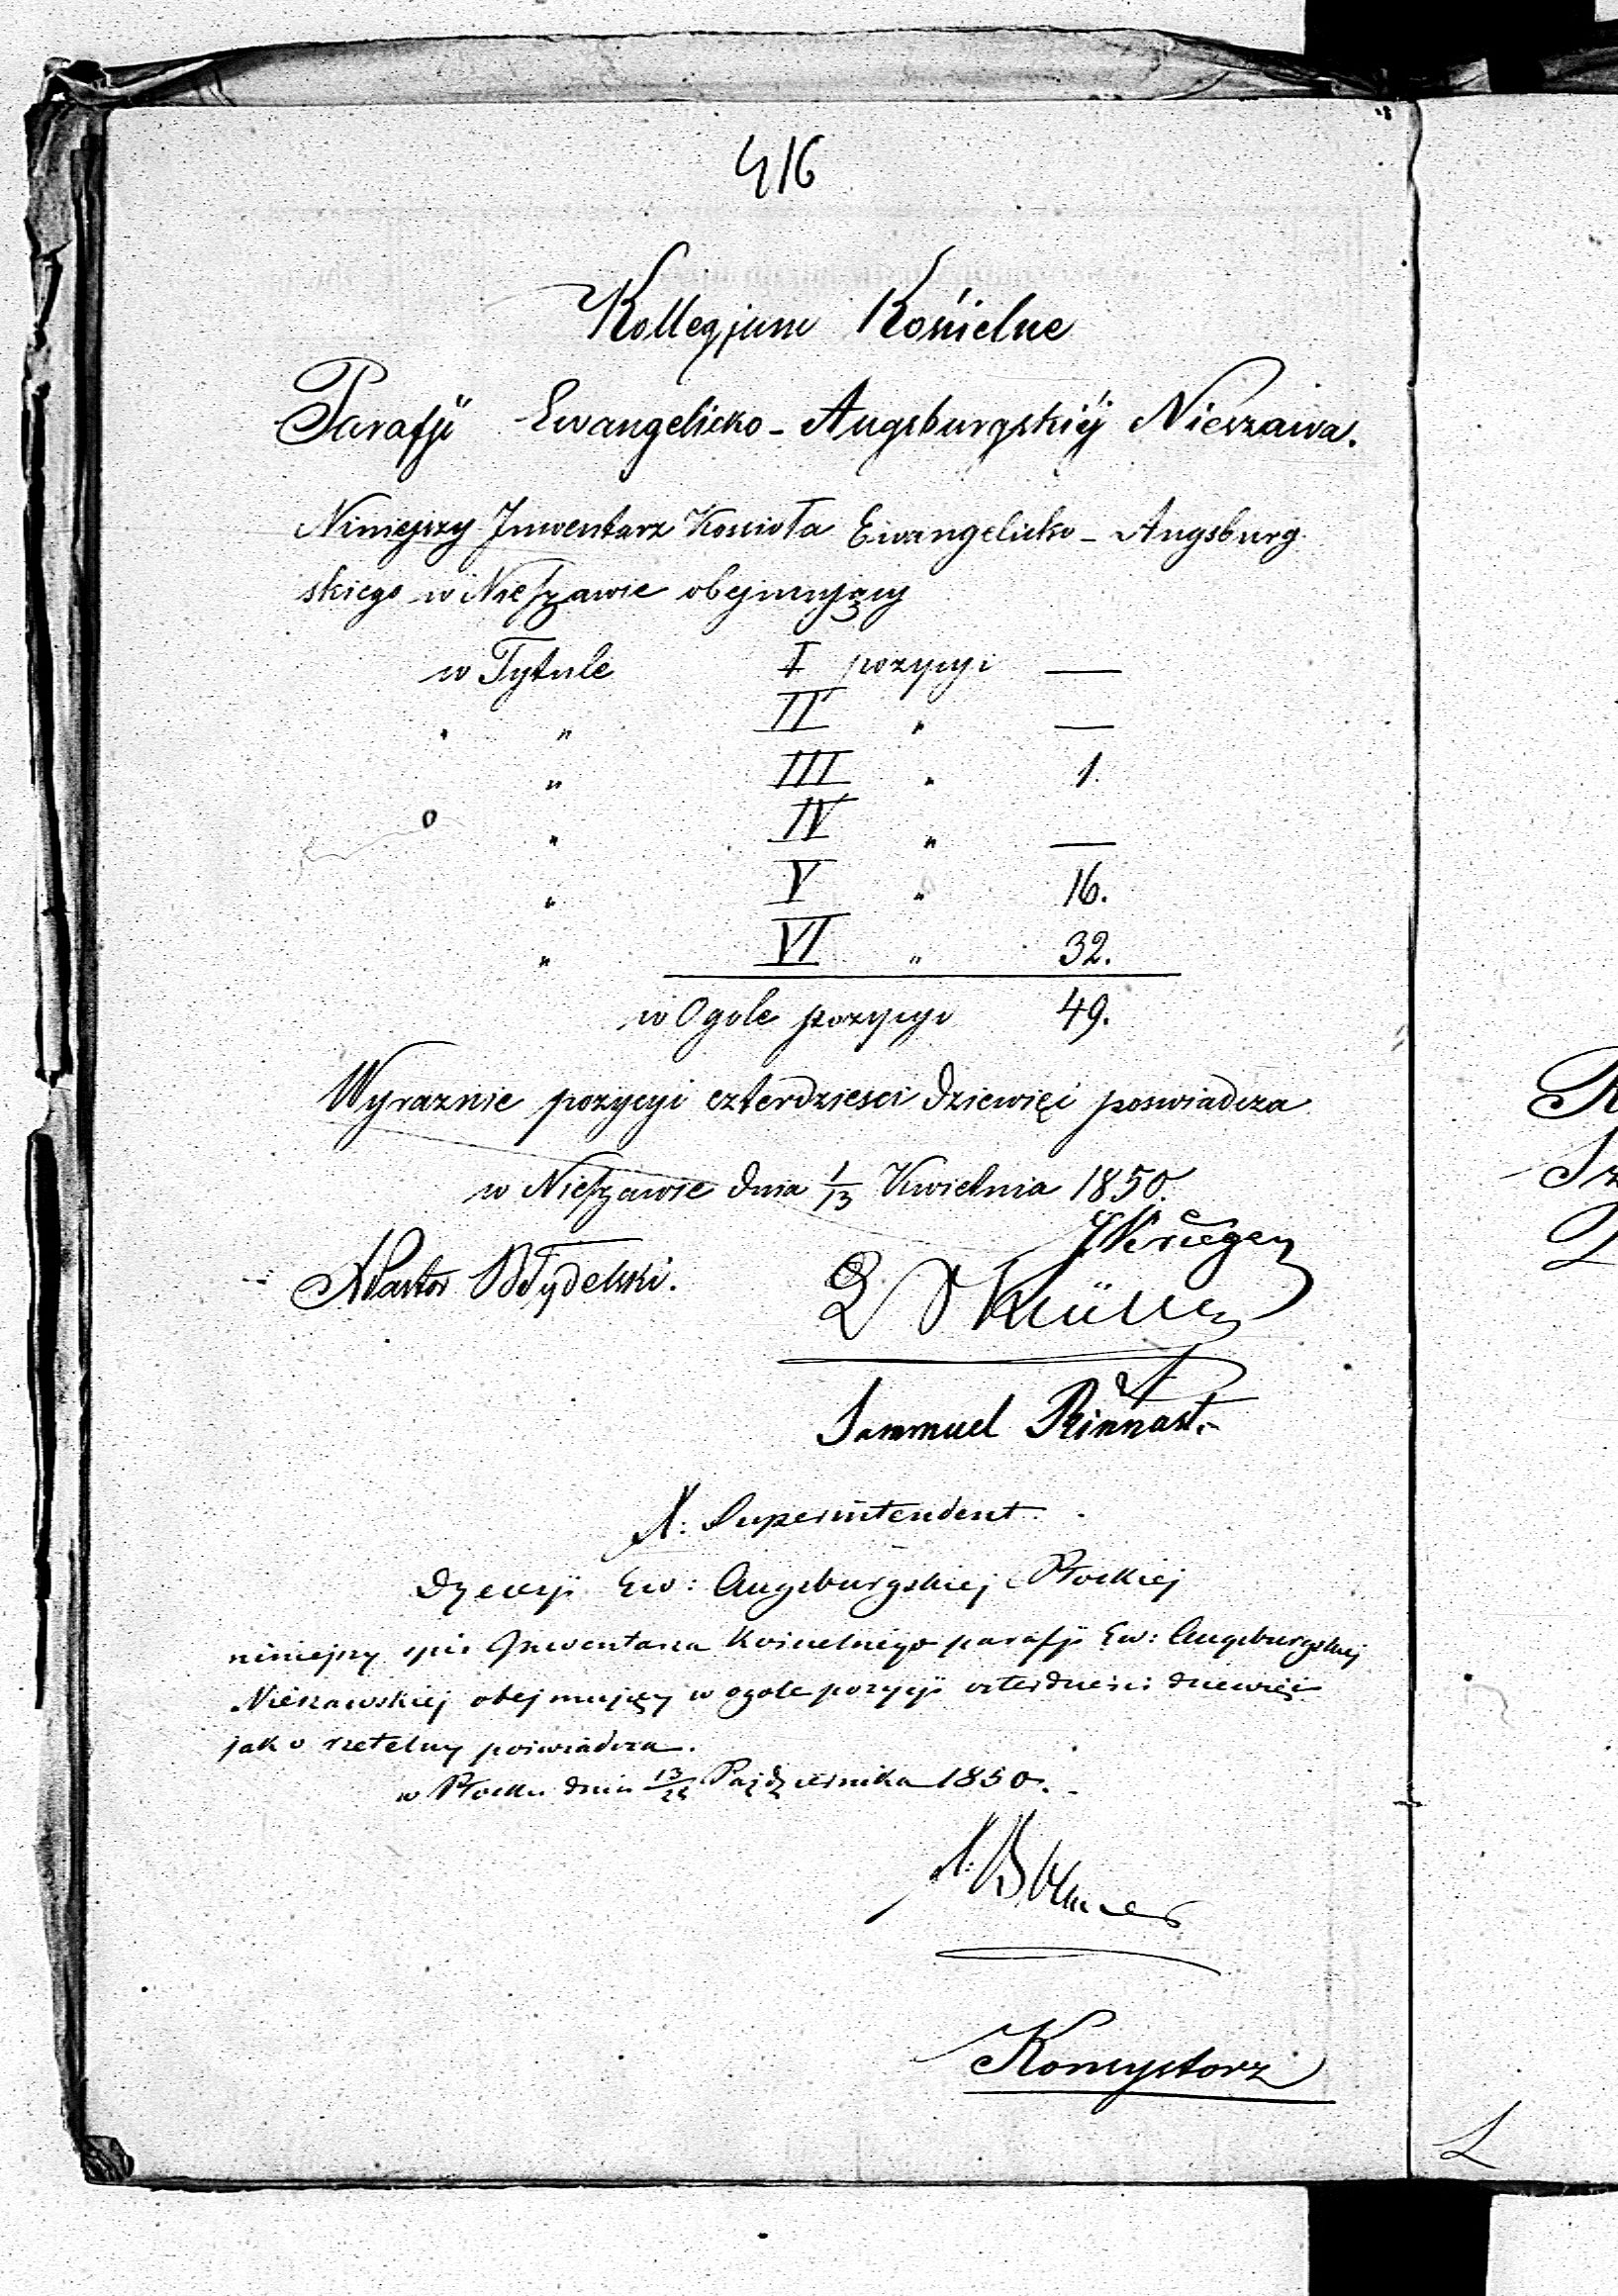 416
Kollegjum Kościelne
Parafji Ewangelicko-Augsburgskiéj Nieszawa.
Niniejszy Inwentarz Kościoła Ewangelicko-Augsburg-
skiego w Nieszawie obejmujący
w Tytule I pozycyi —
" " II " —
" III " 1.
" IV " —
" V " 16.
" VI " 32.
w Ogole pozycyi 49.
Wyraznie pozycyi czterdziesci dziewięć poswiadcza
w Nieszawie dnia 1/13 Kwietnia 1850.
Pastor
JKrüger
Müller
Sammuel Rinnast.
X: Superintendent.
Dyecezji Ew: Augsburgskiej Płockiej
niniejszy spis Inwentarza Kościelnego parafji Ew: Augsburgskiej
Nieszawskiej obejmujący w ogole pozycji czterdzieści dziewięć
jako rzetelny poświadcza.
w Płocku dnia Października 1850.
Konsystorz